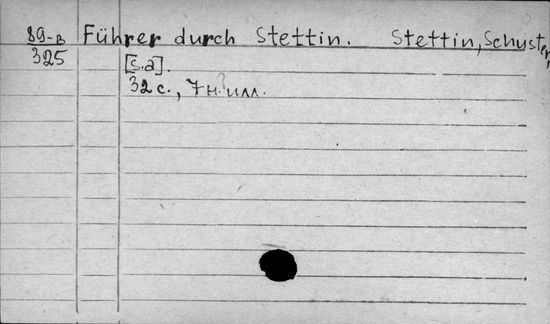 89-в Führer durch Stettin. Stettin, Schuster,
325
[s.a].
32 с., 7 н. илл.